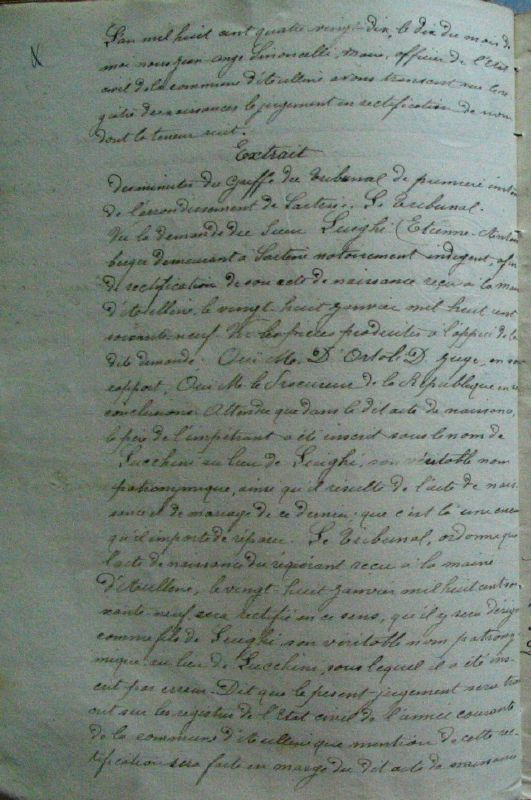 L'an mil huit cent quatre vingt dix, le dix du mois de
mai nous Jean Ange Simoncelli, Maire, officier de l'Etat
civil de la commune d'Aullène avons transcrit sur le re
gistre de naissances le jugement en rectification de nom
dont la teneur suit.
Extrait
des minutes du Greffe du Tribunal de première insta
de l'arrondissement de Sartène. Le Tribunal.
Vu la demande du Sieur Luighi (Etienne Antoi
berger demeurant à Sartène notoirement indigent, afin
de rectification de son acte de naissance reçu à la mai
d'Aullène, le vingt-huit janvier mil huit cent
soixante neuf. Vu les pièces produites à l'appui de la
dite demande. Oui Mr. D. Ortoli D. juge, en son
rapport, Oui Mr le Procureur de la République en ses
conclusions. Attendu que dans le dit acte de naissance,
le père de l'impétrant a été inscrit sous le nom de
Lucchini au lieu de Luighi, son véritable nom
patronymique, ainsi qu'il résulte de l'acte de nais
sance et de mariage de ce dernier que c'est là une erreur
qu'il importe de réparer. Le Tribunal, ordonne que
l'acte de naissance du requérant reçu à la mairie
d'Aullène, le vingt-huit janvier mil huit cent soi
xante neuf, sera rectifié en ce sens, qu'il y sera désigné
comme fils de Luighi, son véritable nom patrony
mique au lieu de Lucchini, sous lequel il a été ins
crit par erreur. Dit que le présent jugement sera trans
crit sur les registres de l'Etat civil de l'année courante
de la commune d'Aullène que mention de cette rec
tification sera faite en marge du dit acte de naissance